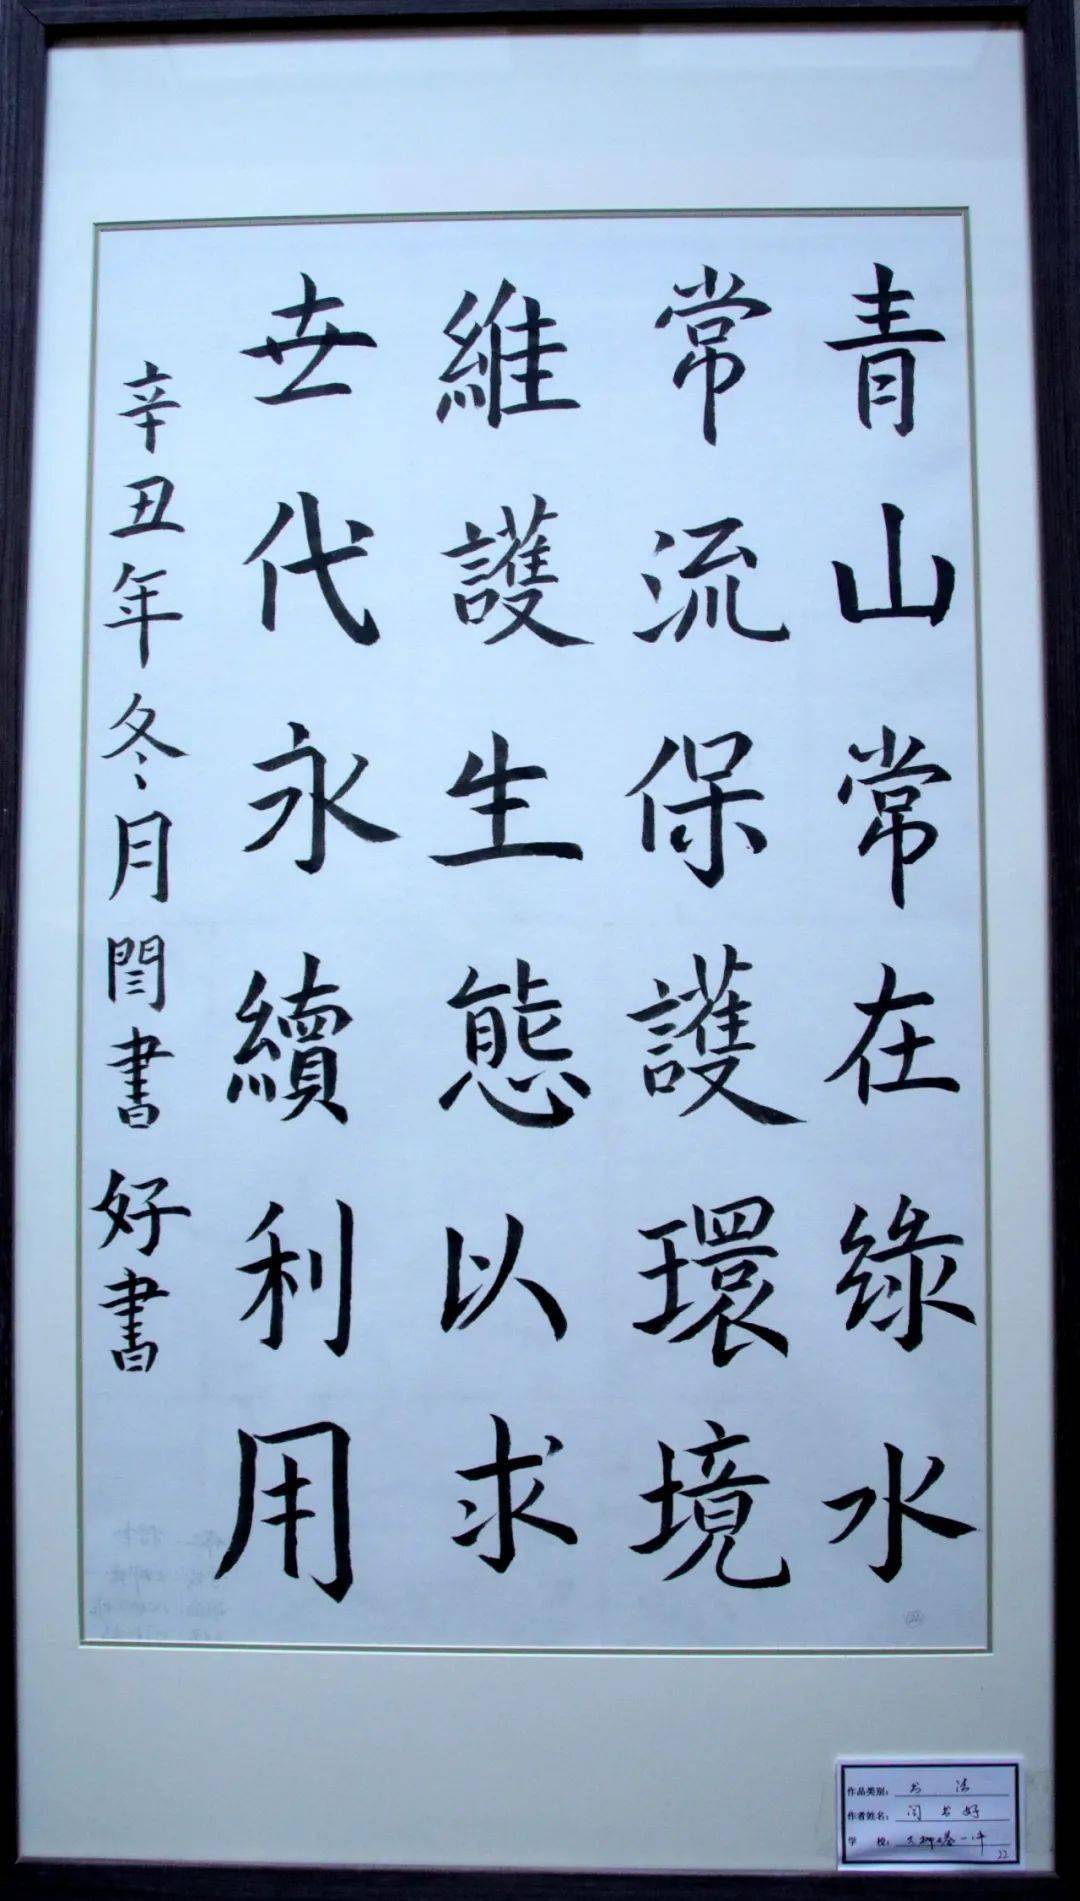 青山常在綠水
常流保護環境
維護生態以求
世代永續利用
辛丑年冬月閆書好書
作品类别：书法
作者姓名：闫书好
学校：大柳塔一中
22